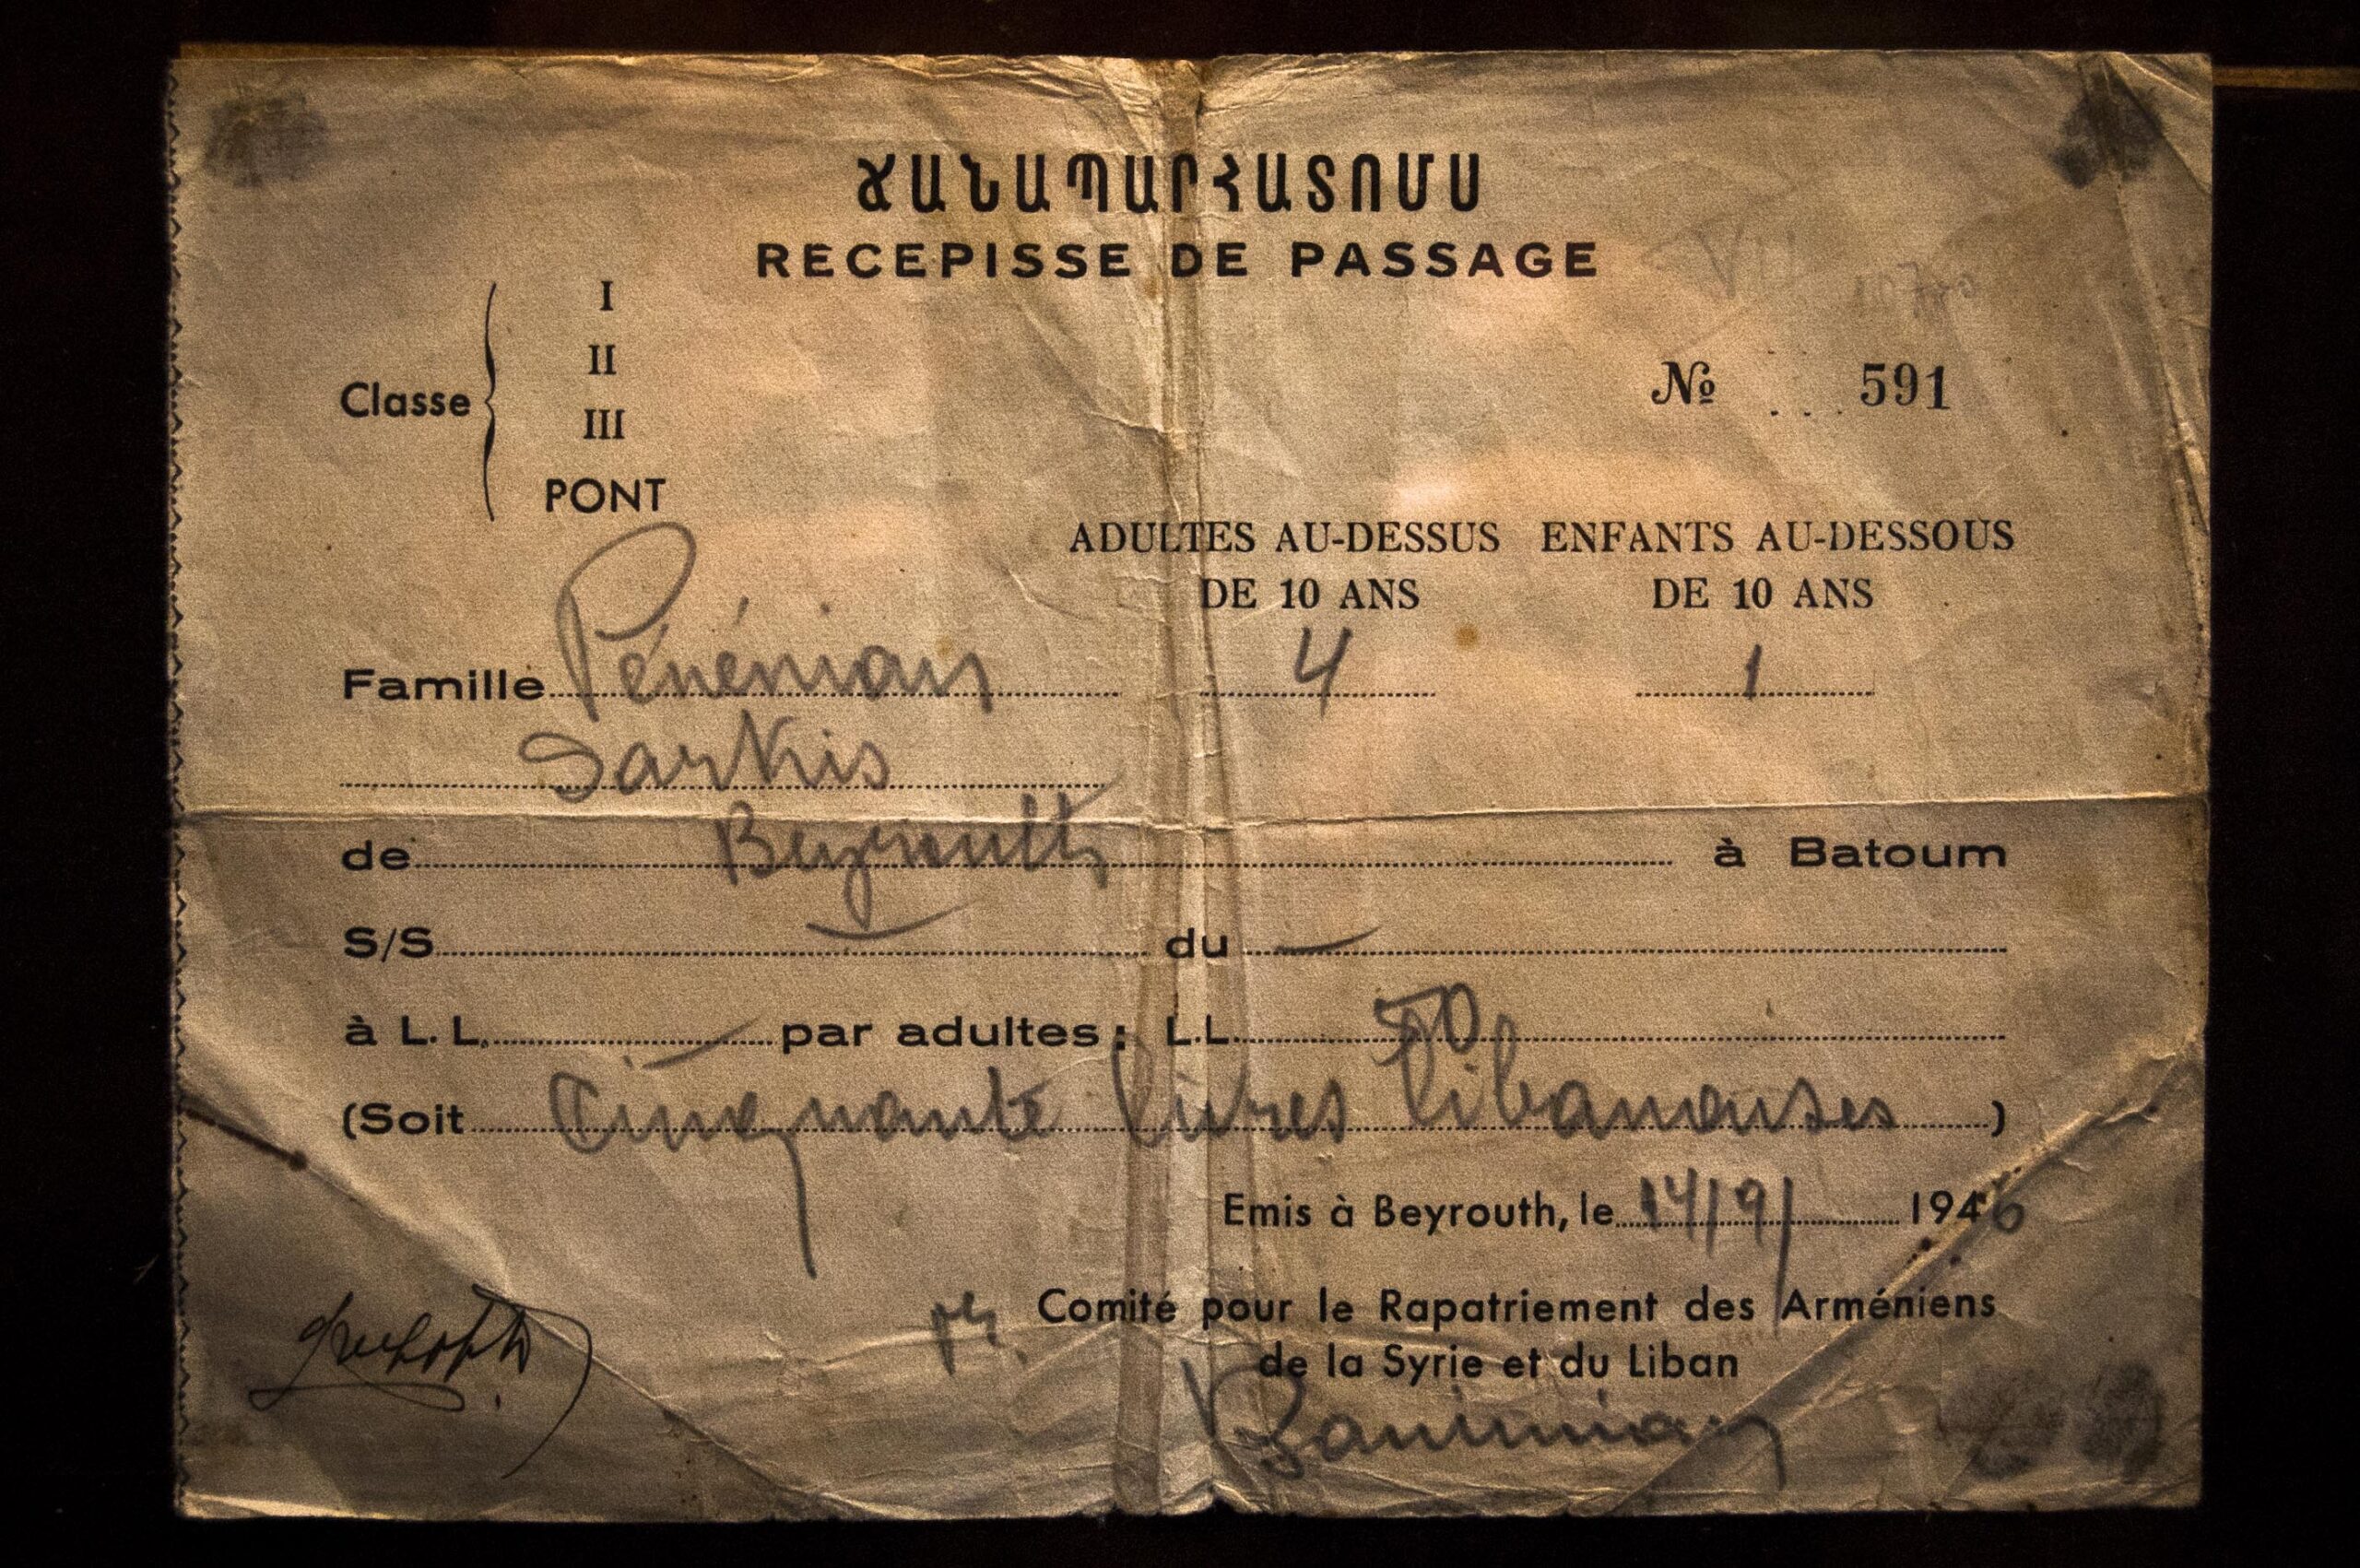 ՃԱՆԱՊԱՐՀԱՏՈՄՍ
RECEPISSE DE PASSAGE
VII
Classe
I
II
III
PONT
№ ... 591
ADULTES AU-DESSUS DE 10 ANS
ENFANTS AU-DESSOUS DE 10 ANS
Famille Pénénian 4 1
Sarkis
de Beyrouth à Batoum
S/S — du —
à L. L. — par adultes : L.L. 50
(Soit Cinquante livres libanaises)
Emis à Beyrouth, le 14/9/ 1946
Comité pour le Rapatriement des Arméniens
de la Syrie et du Liban